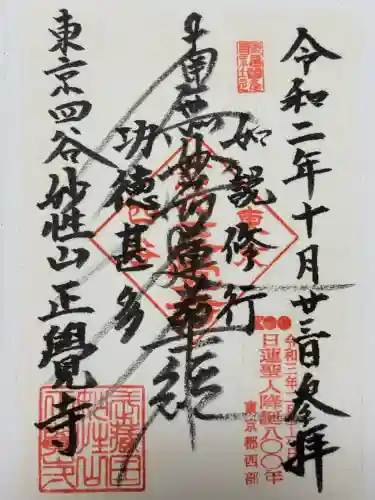 令和二年十月廿三日奉拝
如説修行
南無妙法蓮華経
功徳甚多
東京四谷妙性山正覺寺
令和三年二月十六日
日蓮聖人降誕八〇〇年
東京都西部